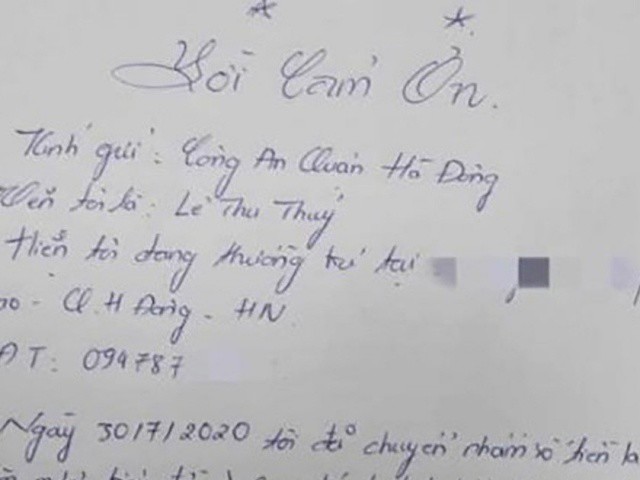 Lời Cảm Ơn.
Kính gửi: Công An Quận Hà Đông
Tên tôi là: Lê Thu Thuỷ
Hiện tôi đang thường trú tại
- Q. H Đông - HN
ĐT: 094787
Ngày 30/7/2020 tôi đã chuyển nhầm số tiền là